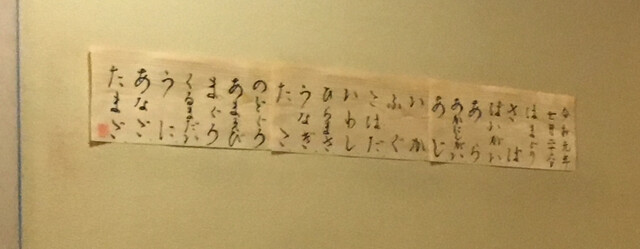 令和元年
七月二十六
はまぐり
さば
はかがい
あら
あかにしがい
あじ
いか
ふぐ
こはだ
いわし
ひらまさ
うなぎ
たこ
のどぐろ
あまえび
まぐろ
くるまだい
うに
あなご
たまご